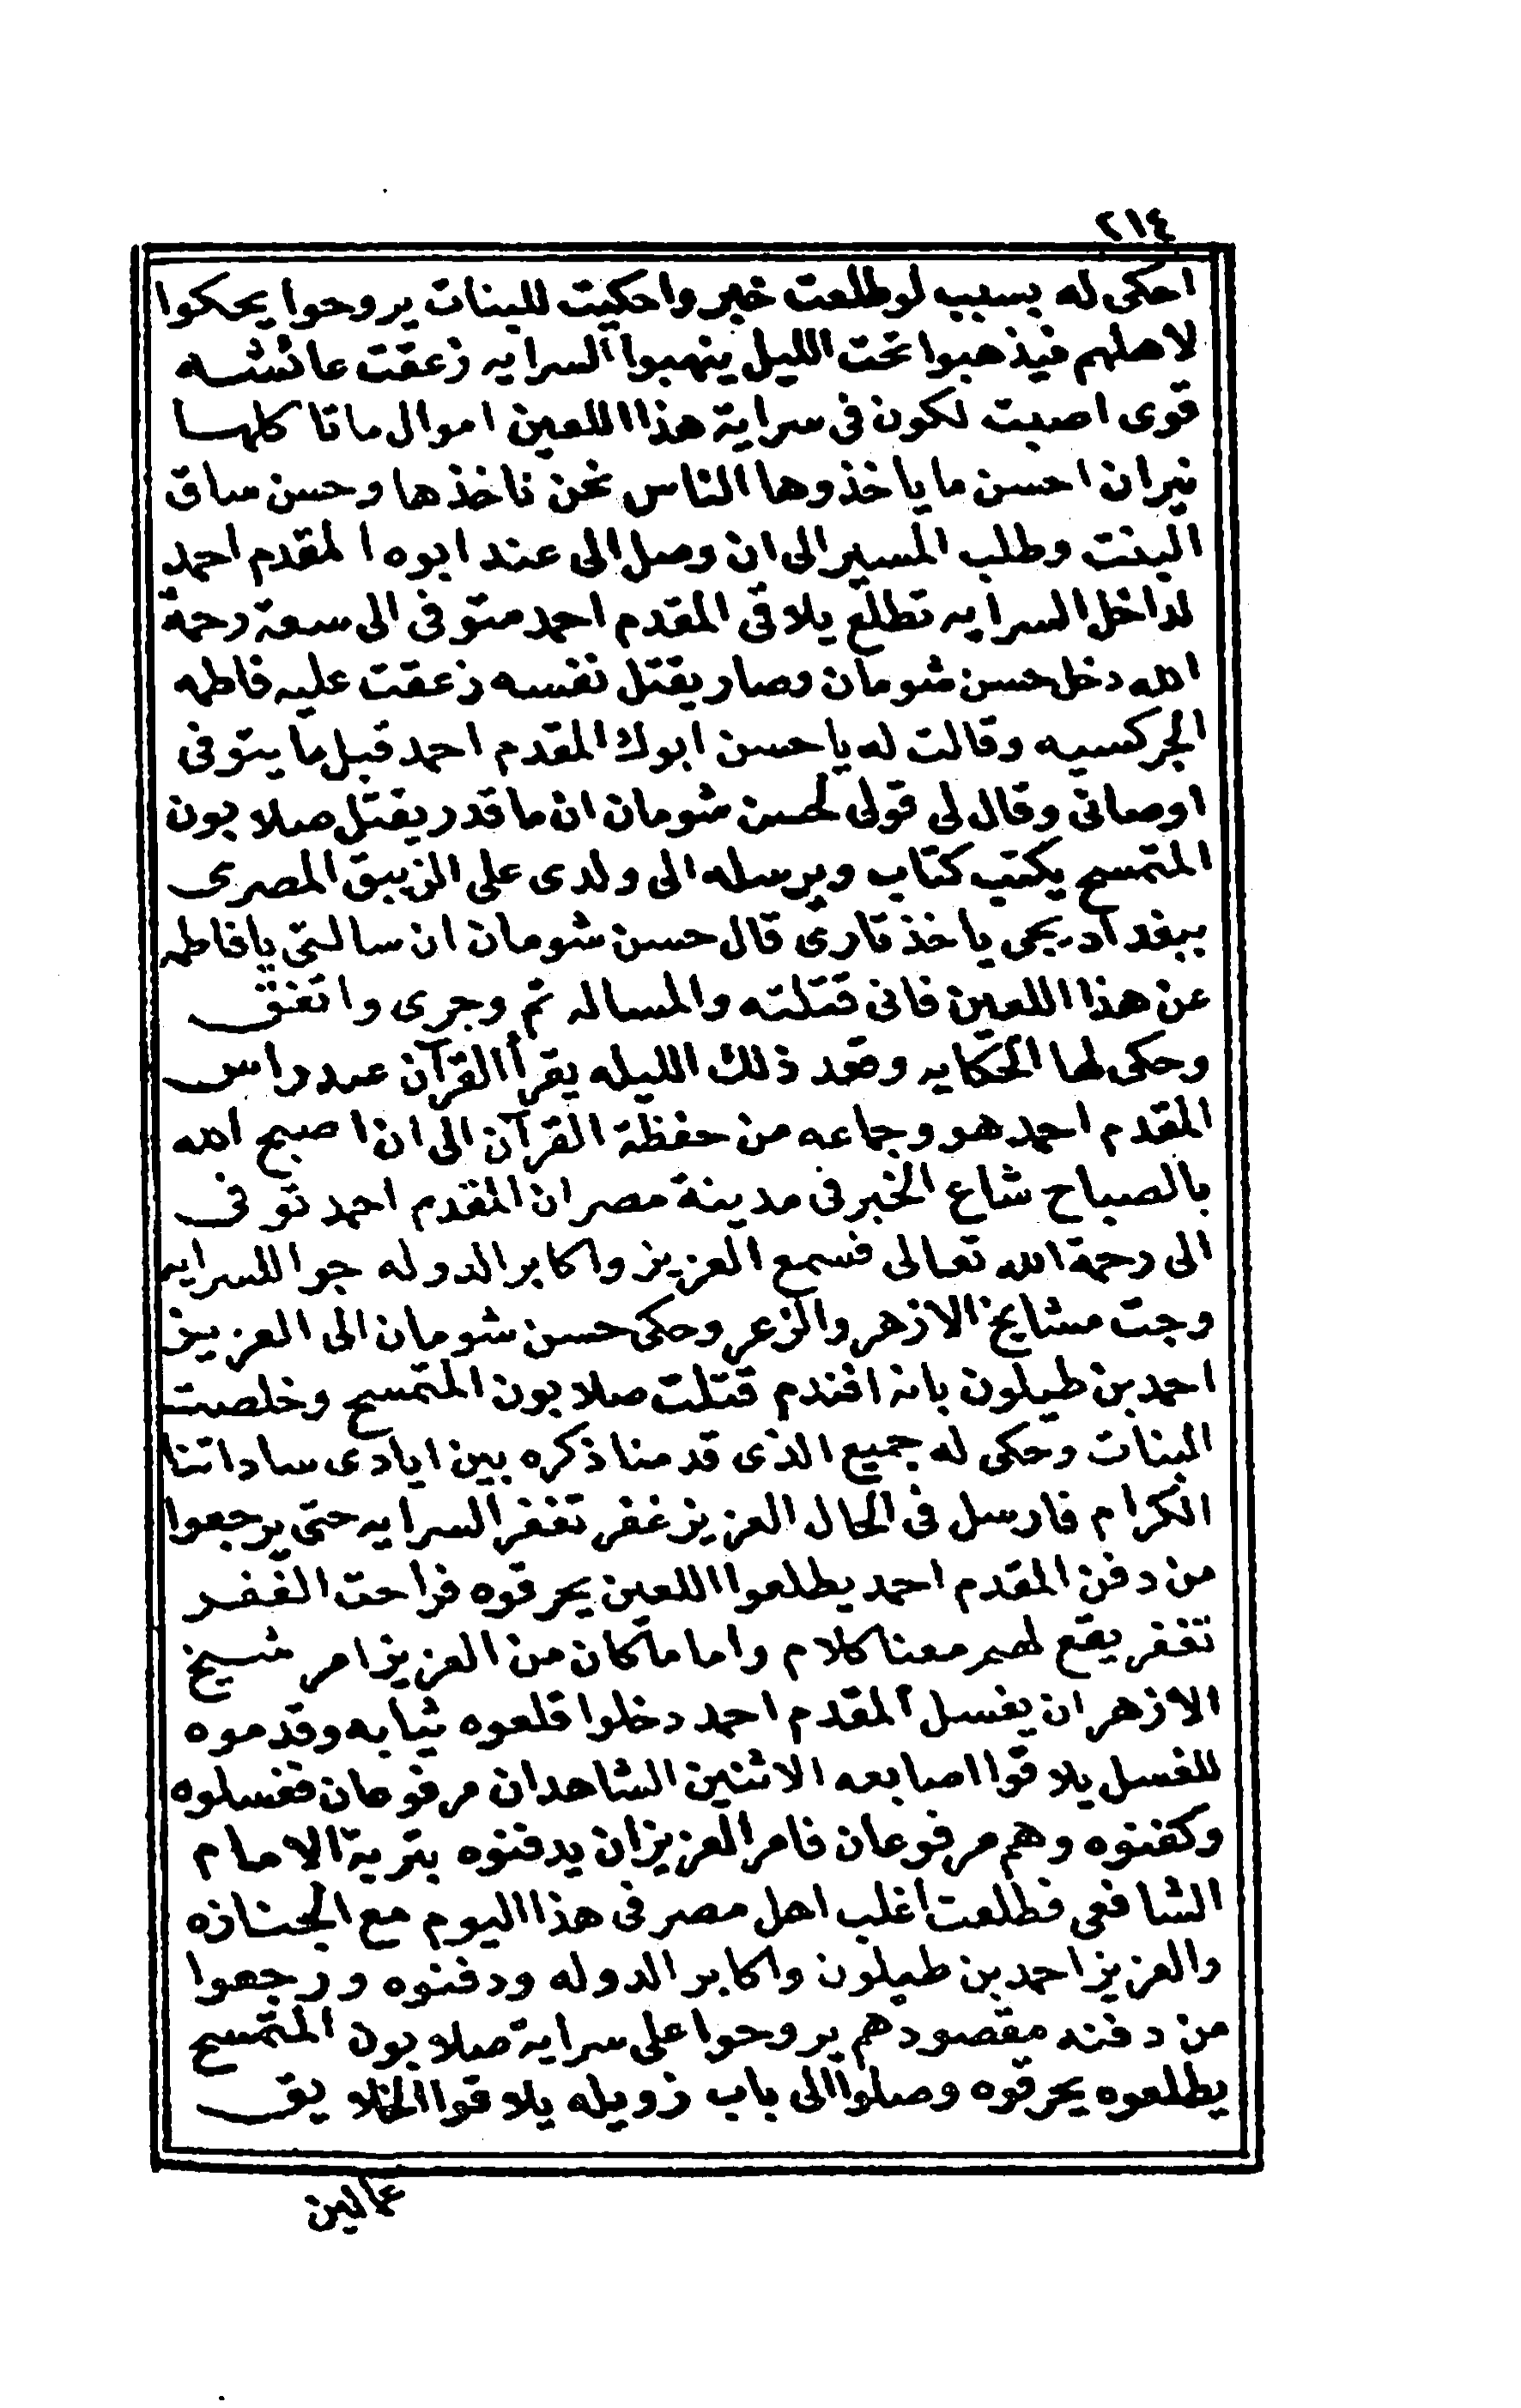 ٢١٤
احكى له بسبب لو طلعت خبر واحكيت للبنات يروحوا يحكوا
لاهلهم فيذهبوا تحت الليل ينهبوا السرايه زعقت عائشه
قوى اصبت لكون فى سراية هذا اللعين اموال ما تاكلها
نيران احسن ما ياخذوها الناس نحن ناخذها وحسن ساق
البنت وطلب المسير الى ان وصل الى عند ابوه المقدم احمد
لداخل السرايه تطلع يلاقى المقدم احمد متوفى الى سعة رحمة
الله دخل حسن شومان وصار يقتل نفسه زعقت عليه فاطمه
الجركسيه وقالت له يا حسن ابوك المقدم احمد قبل ما يتوفى
اوصانى وقال لى قولى لحسن شومان ان ما قدر يقتل صلابون
المتمسح يكتب كتاب ويرسله الى ولدى على الزيبق المصرى
ببغداد يجى ياخذ تارى قال حسن شومان ان سالتى يا فاطمه
عن هذا اللعين فانى قتلته والمساله تم وجرى واتفق
وحكى لها الحكايه وقعد ذلك الليله يقرأ القرآن عند راس
المقدم احمد هو وجماعه من حفظة القرآن الى ان اصبح الله
بالصباح شاع الخبر فى مدينة مصر ان المقدم احمد توفى
الى رحمة الله تعالى فسمع العزيز واكابر الدوله جوا للسرايه
وجت مشايخ الازهر والزعر وحكى حسن شومان الى العزيز
احمد بن طيلون بانه افندم قتلت صلابون المتمسح وخلصت
البنات وحكى له جميع الذى قدمنا ذكره بين ايادى ساداتنا
الكرام فارسل فى الحال العزيز غفر تغفر السرايه حتى يرجعوا
من دفن المقدم احمد يطلعوا اللعين يحرقوه فراحت الغفر
تغفر يقع لهم معنا كلام واما ما كان من العزيز امر شيخ
الازهر ان يغسل المقدم احمد دخلوا قلعوه ثيابه وقدموه
للغسل يلاقوا اصابعه الاثنين الشاهدان مرفوعان فغسلوه
وكفنوه وهم مرفوعان فامر العزيز ان يدفنوه بتربة الامام
الشافعى فطلعت اغلب اهل مصر فى هذا اليوم مع الجنازه
والعزيز احمد بن طيلون واكابر الدوله ودفنوه ورجعوا
من دفنه مقصودهم يروحوا على سراية صلابون المتمسح
يطلعوه يحرقوه وصلوا الى باب زويله يلاقوا الخلايق
عمالين